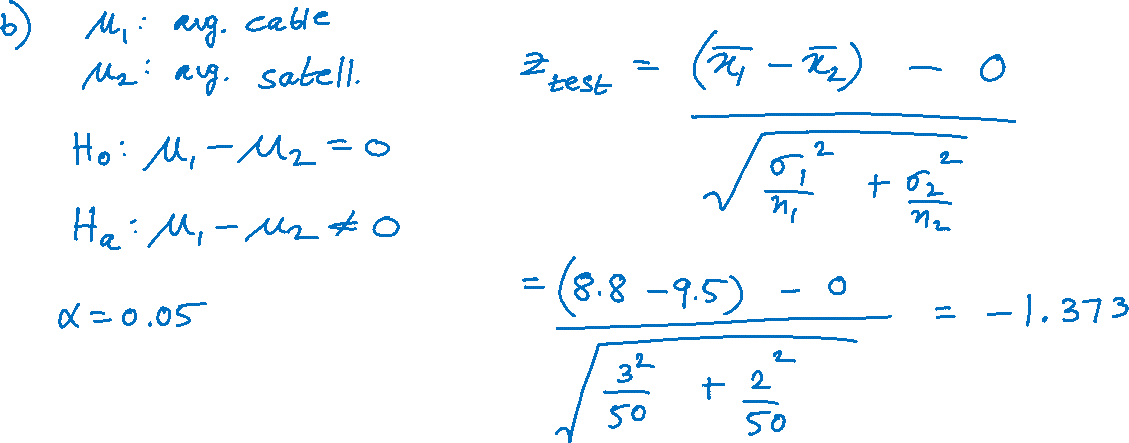 b) μ₁: avg. cable
μ₂: avg. satell.
H₀: μ₁ - μ₂ = 0
Hₐ: μ₁ - μ₂ ≠ 0
α = 0.05
z_test = ((x̄₁ - x̄₂) - 0) / √(σ₁²/n₁ + σ₂²/n₂)
= ((8.8 - 9.5) - 0) / √(3²/50 + 2²/50) = -1.373